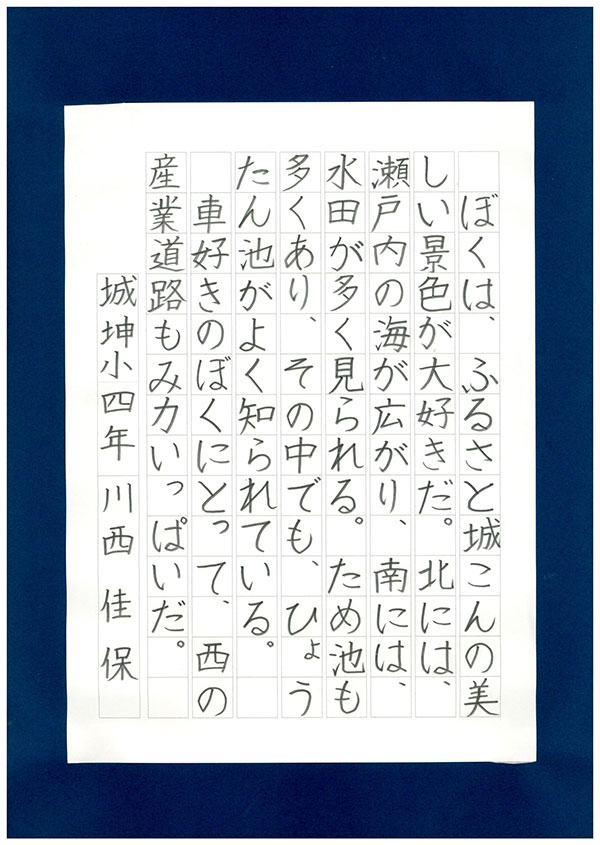 ぼくは、ふるさと城こんの美
しい景色が大好きだ。北には、
瀬戸内の海が広がり、南には、
水田が多く見られる。ため池も
多くあり、その中でも、ひょう
たん池がよく知られている。
車好きのぼくにとって、西の
産業道路もみ力いっぱいだ。
城坤小四年 川西 佳保